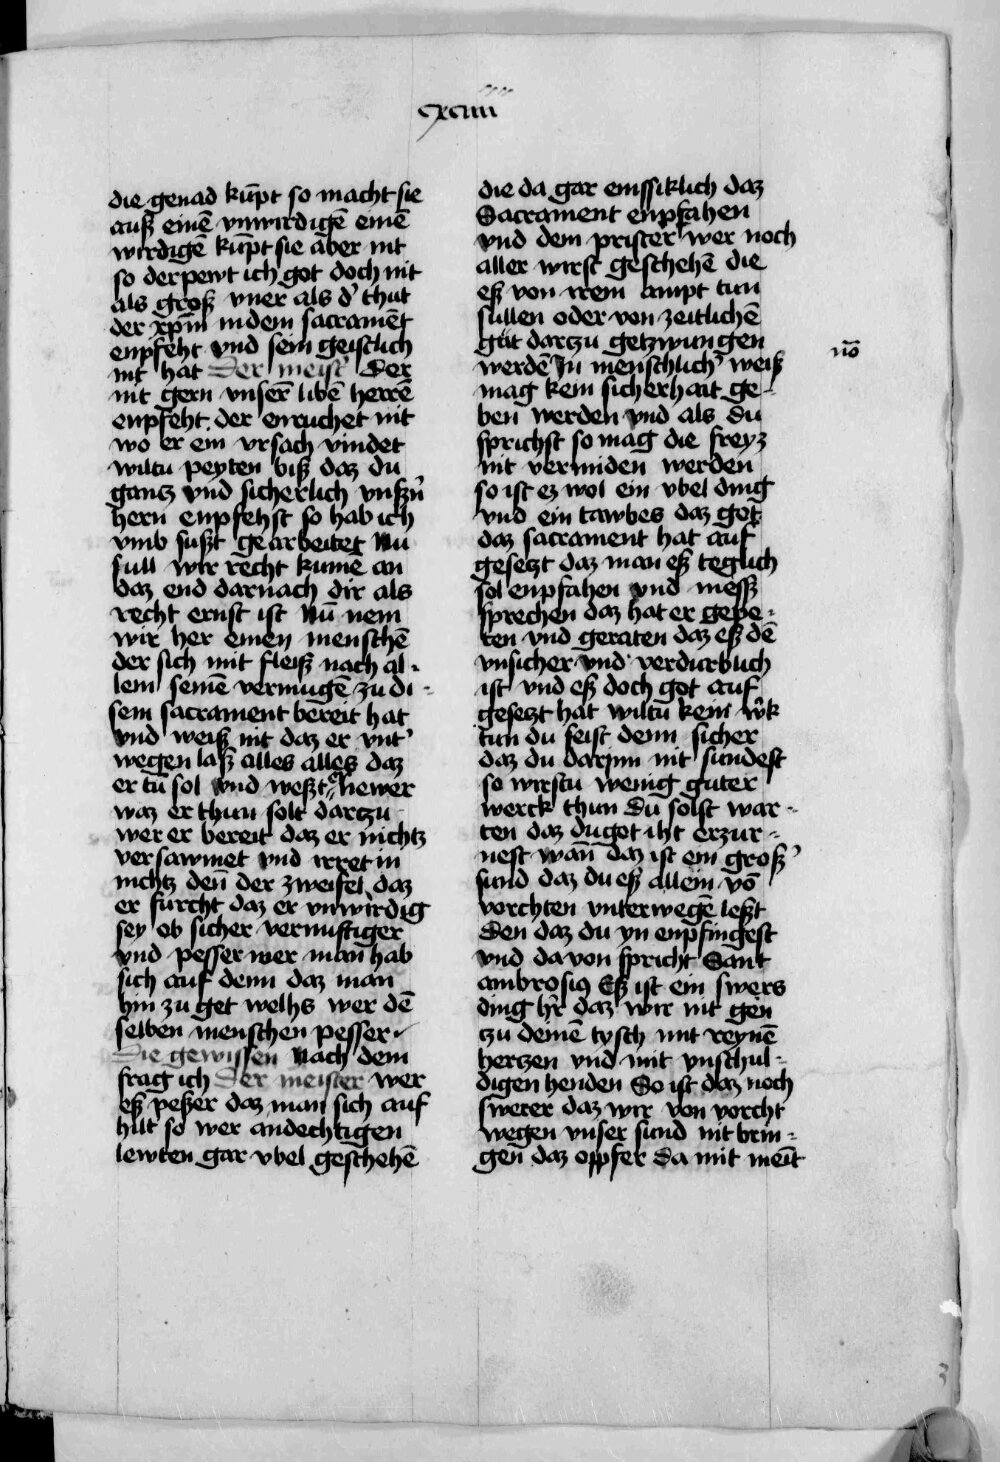 cxciiii
die genad kūpt so macht sie
auß einē vnwirdigē einē
wirdigē kūpt sie aber nit
so derpewt ich got doch nit
als groß vner als d' thut
der xpm̄ in dem sacramēt
enpfeht vnd sein geistlich
nit hat Der meist' Der
nit gern vnserē libē herrē
enpfeht. der enruchet nit
wo er ein vrsach vindet
wiltu peyten biß daz du
gantz vnd sicherlich vnßn̄
hern enpfehst so hab ich
vmb sußt gearbeitet Nu
sull wir recht kumē an
daz end darnach dir als
recht ernst ist Nū nem
wir her einen menschē
der sich mit fleiß nach al-
lem seinē vermugē zu di-
sem sacrament bereit hat
vnd weiß nit daz er vnt'
wegen laß alles alles daz
er tū sol vnd weßt hewer
waz er thun solt dartzu
wer er bereit daz er nichtz
versawmet vnd irret in
nichtz den̄ der zweifel daz
er furcht daz er vnwirdig
sey ob sicher vernuftiger
vnd pesser wer man hab
sich auf denn daz man
hin zu get welhs wer dē
selben menschen pesser
Die gewissen Nach dem
frag ich Der meister wer
eß peßer daz man sich auf
hilt so wer andechtigen
lewten gar vbel geschehē
die da gar emssiklich daz
Sacrament enpfahen
vnd dem prister wer noch
aller wirst geschehē die
eß von irem ampt tun
sullen oder von zeitlichē
gut dartzu getzwungen
werdē In menschlich' weiß
nō
mag kein sicherhait ge-
ben werden vnd als du
sprichst so mag die freyz
nit vermiden werden
so ist ez wol ein vbel ding
vnd ein tawbes daz got
daz sacrament hat auf
gesetzt daz man eß teglich
sol enpfahen vnd messz
sprechen daz hat er gepe-
ten vnd geraten daz eß dē
vnsicher vnd verdurblich
ist vnd eß doch got auf
gesetzt hat wiltu kein w'k
tun du seist denn sicher
daz du darinn nit sundest
so wirstu wenig guter
werck thun Du solst war-
ten daz du got iht erzur-
nest wan̄ daz ist ein groß'
sund daz du eß allein vō
vorchten vnterwegē leßt
Den daz du yn enpfingest
vnd da von spricht Sant
ambrosius Eß ist ein swers
ding h'r daz wir nit gen
zu deinē tysch mit reynē
hertzen vnd mit vnschul-
digen henden So ist daz noch
swerer daz wir von vorcht
wegen vnser sund nit brin-
gen daz oppfer Da mit meīt